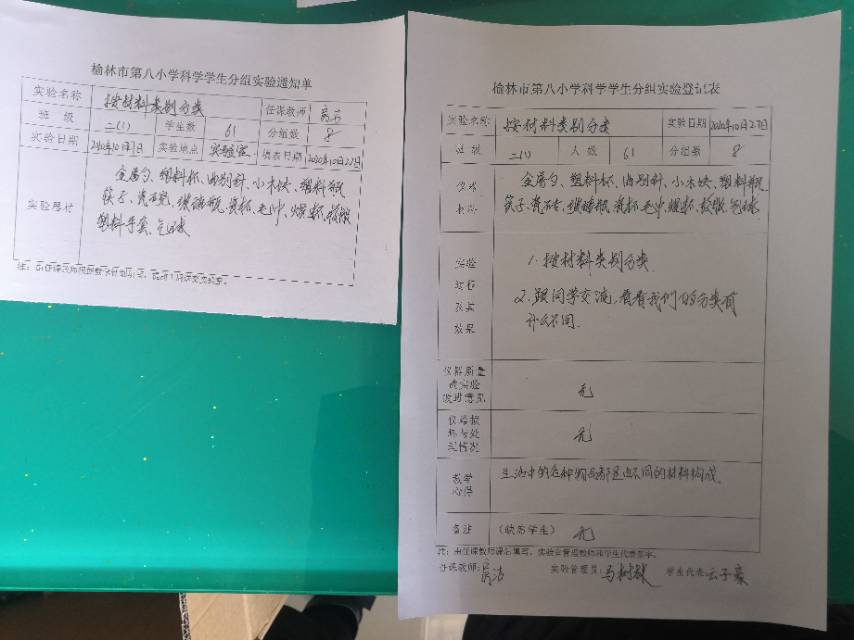 榆林市第八小学科学学生分组实验通知单
实验名称 按材料类别分类 任课教师
班 级 二(1) 学生数 61 分组数 8
实验日期 实验地点 实验室 填表日期 2020年10月22日
实验器材
金属勺、塑料杯、曲别针、小木块、塑料瓶
筷子、瓷砖、玻璃瓶、瓷杯、毛巾、
塑料手套、气球
榆林市第八小学科学学生分组实验登记表
实验名称 按材料类别分类 实验日期 2020年10月27日
班 级 二(1) 人 数 61 分组数 8
仪器
金属勺、塑料杯、曲别针、小木块、塑料瓶
筷子、瓷砖、玻璃瓶、瓷杯、毛巾、气球
实验
过程
及其
效果
1.按材料类别分类
2.跟同学交流,看看我们的分类有
什么不同.
仪器质量
或实验
改进意见
无
仪器损
坏与处
理情况
无
教学
心得
生活中的各种物品都是由不同的材料构成.
备注 (缺席学生) 无
注:由任课教师课后填写,实验室管理教师和学生代表签字。
任课教师: 实验管理员: 学生代表: